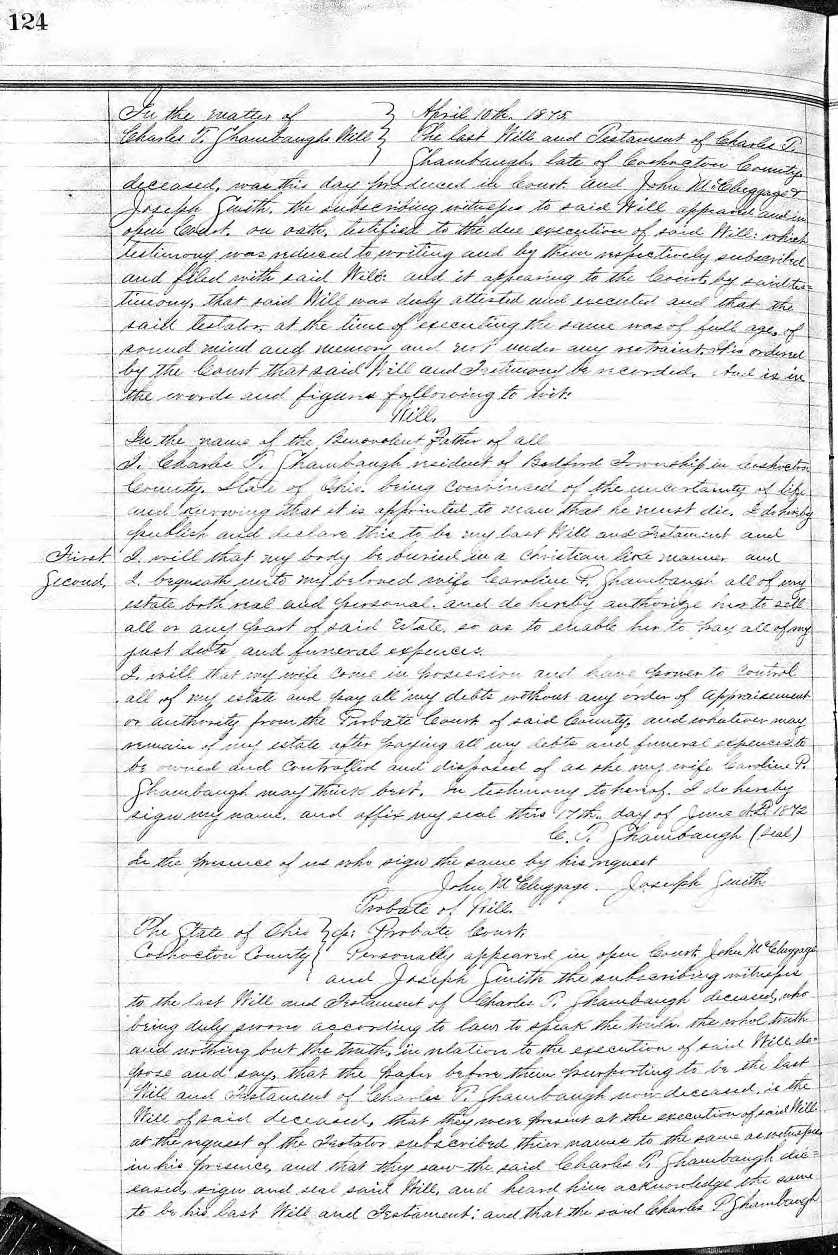 124
In the matter of } April 10th. 1875
Charles P. Shambaughs Will } The last Will and Testament of Charles P.
Shambaugh, late of Coshocton County,
deceased, was this day produced in Court and John McCluggage &
Joseph Smith, the subscribing witnesses to said Will appeared and in
open Court, on oath, testified to the due execution of said Will: which
testimony was reduced to writing and by them respectively subscribed
and filed with said Will: and it appearing to the Court, by said tes=
timony, that said Will was duly attested and executed and that the
said testator, at the time of executing the same was of full age, of
sound mind and memory and not under any restraint. It is ordered
by the Court that said Will and Testimony be recorded. And is in
the words and figures following to wit:
Will.
In the name of the Benevolent Father of all
I, Charles P. Shambaugh resident of Bedford Township in Coshocton
County, State of Ohio, being convinced of the uncertainty of life
and knowing that it is appointed to man that he must die, I do hereby
publish and declare this to be my last Will and Testament and
First. I will that my body be buried in a Christian like manner and
Second, I bequeath unto my beloved wife Caroline P. Shambaugh all of my
estate both real and personal. and do hereby authorize her to sell
all or any part of said Estate, so as to enable her to pay all of my
just debts and funeral expences.
I will that my wife come in posession and have power to control
all of my estate and pay all my debts without any order of appraisement
or authority from the Probate Court of said County, and whatever may
remain of my estate after paying all my debts and funeral expences, to
be owned and controlled and disposed of as she my wife Caroline P.
Shambaugh may think best. In testimony to hereof, I do hereby
sign my name, and affix my seal this 17th. day of June A.D. 1872
C. P. Shambaugh (Seal)
In the presence of us who sign the same by his request
John McCluggage. Joseph Smith
Probate of Will.
The State of Ohio } ss: Probate Court,
Coshocton County } Personally appeared in open Court John McCluggage
and Joseph Smith the subscribing witnesses
to the last Will and Testament of Charles P. Shambaugh deceased, who
being duly sworn according to law to speak the truth, the whol truth
and nothing but the truth, in relation to the execution of said Will de=
pose and say, that the paper before them purporting to be the last
Will and Testament of Charles P. Shambaugh now deceased, is the
Will of said deceased, that they were present at the execution of said Will
at the request of the Testator subscribed thier names to the same as witnesses
in his presence, and that they saw the said Charles P. Shambaugh dec=
eased, sign and seal said Will, and heard him acknowledge the same
to be his last Will and Testament: and that the said Charles P Shambaugh